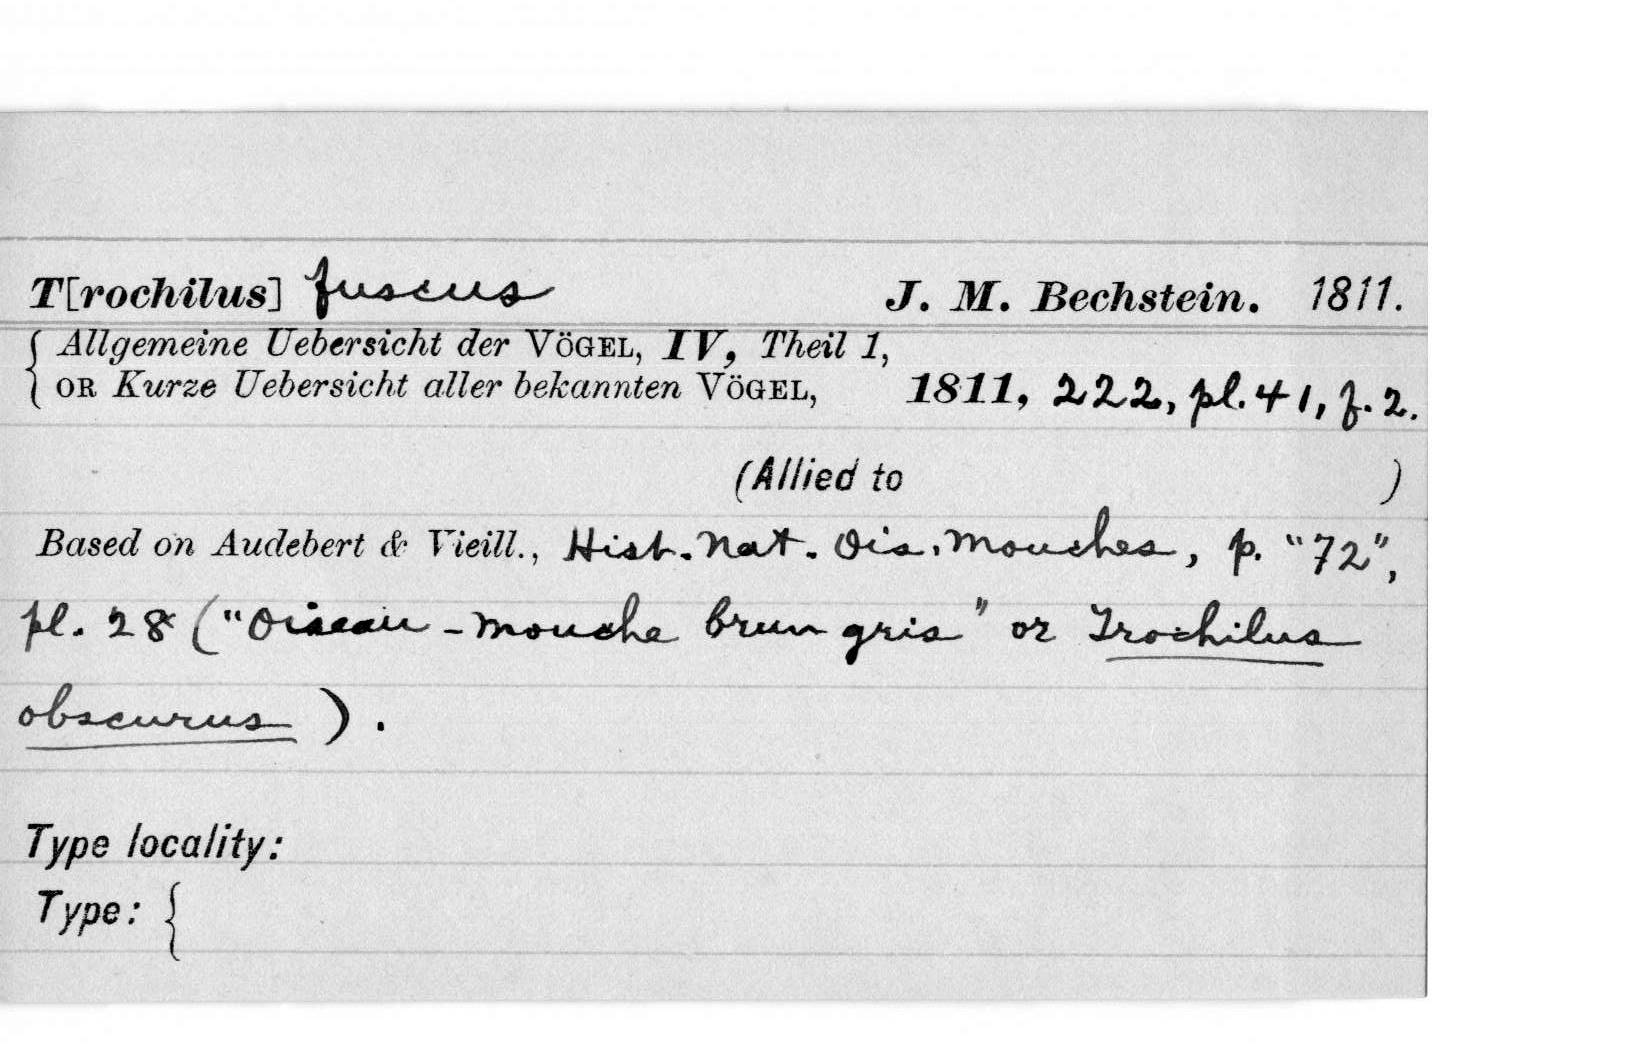 T[rochilus] fuscus J. M. Bechstein. 1811.
{ Allgemeine Uebersicht der VÖGEL, IV, Theil 1,
OR Kurze Uebersicht aller bekannten VÖGEL, 1811, 222, pl. 41, f. 2.
(Allied to )
Based on Audebert & Vieill., Hist. Nat. Ois. Mouches, p. "72",
pl. 28 ("Oiseau-mouche brun gris" or Trochilus
obscurus ).
Type locality:
Type: {